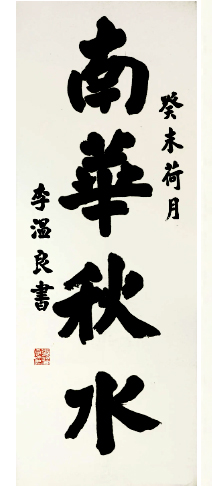 癸未荷月
南華秋水
李溫良書